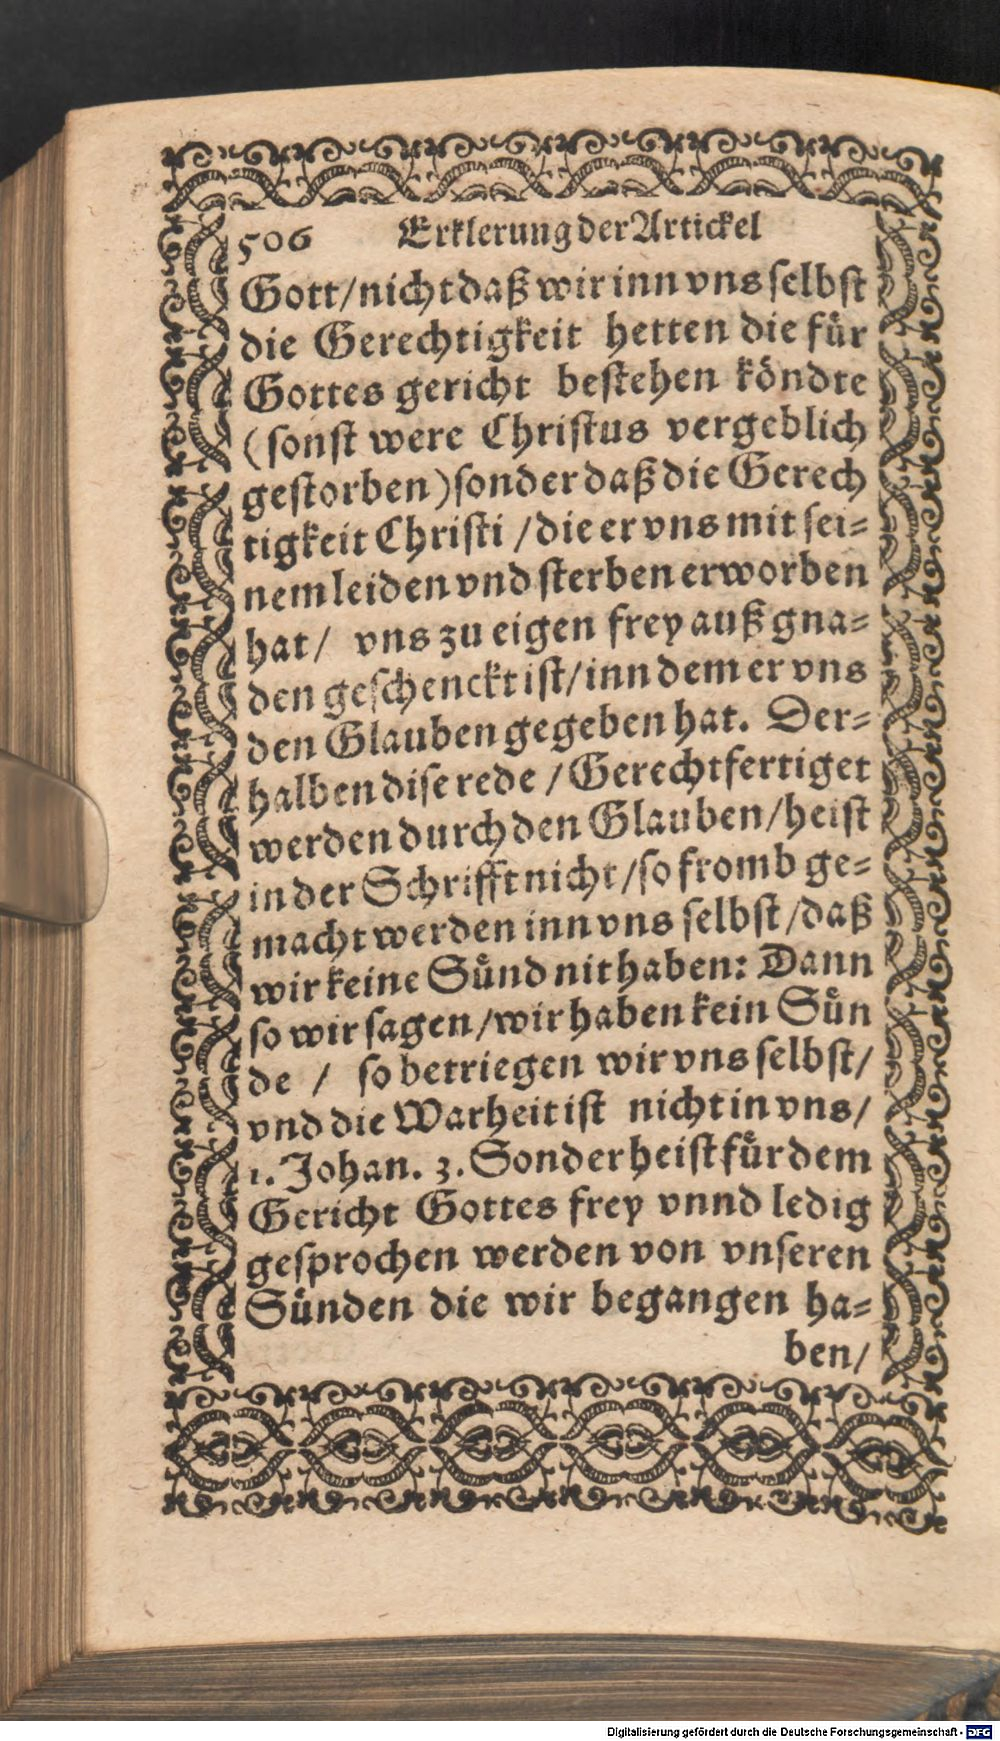 506 Erklerung der Artickel
Gott/nicht daß wir inn vns selbst
die Gerechtigkeit hetten die fuͤr
Gottes gericht bestehen koͤndte
(sonst were Christus vergeblich
gestorben) sonder daß die Gerech
tigkeit Christi /die er vns mit sei-
nem leiden vnd sterben erworben
hat/ vns zu eigen frey auß gna-
den geschenckt ist/inn dem er vns
den Glauben gegeben hat. Der-
halben dise rede /Gerechtfertiget
werden durch den Glauben/heist
in der Schrifft nicht/so fromb ge-
macht werden inn vns selbst/daß
wir keine Suͤnd nit haben: Dann
so wir sagen/wir haben kein Suͤn
de / so betriegen wir vns selbst/
vnd die Warheit ist nicht in vns/
1. Johan. 3. Sonder heist fuͤr dem
Gericht Gottes frey vnnd ledig
gesprochen werden von vnseren
Suͤnden die wir begangen ha-
ben/
Digitalisierung gefördert durch die Deutsche Forschungsgemeinschaft - DFG